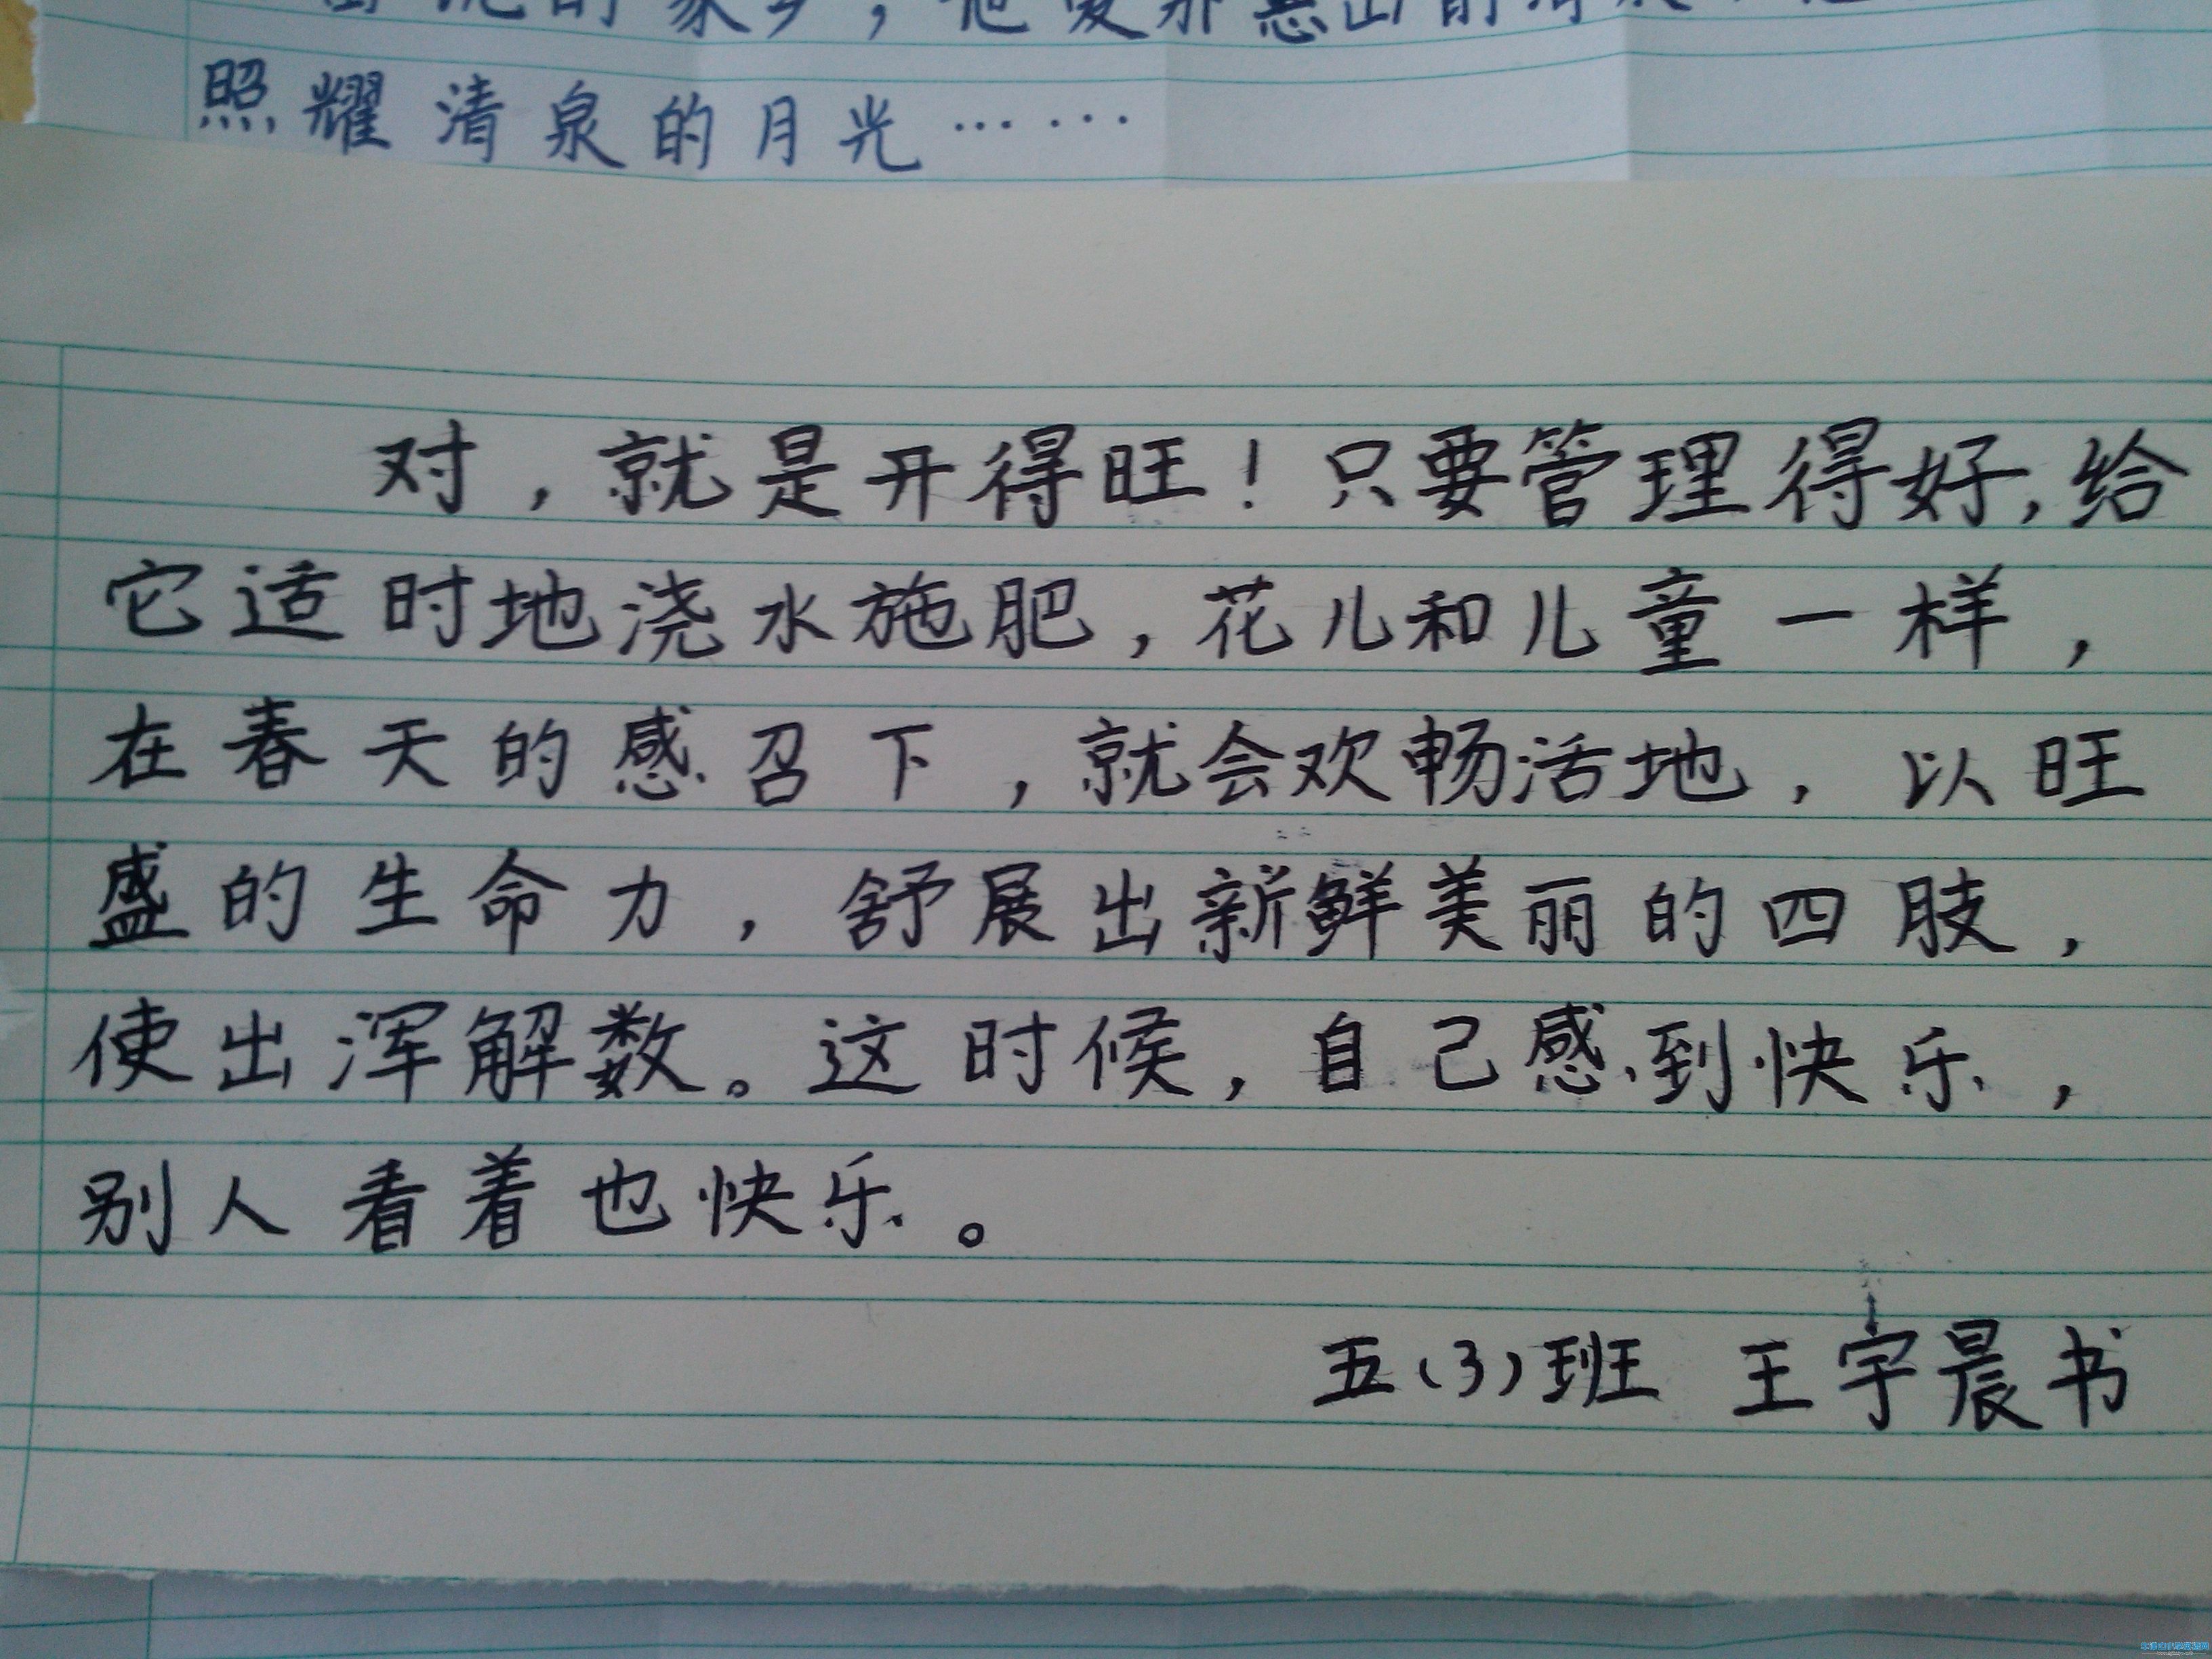 照耀清泉的月光……
对，就是开得旺！只要管理得好，给
它适时地浇水施肥，花儿和儿童一样，
在春天的感召下，就会欢畅活地，以旺
盛的生命力，舒展出新鲜美丽的四肢，
使出浑解数。这时候，自己感到快乐，
别人看着也快乐。
五（3）班 王宇晨书